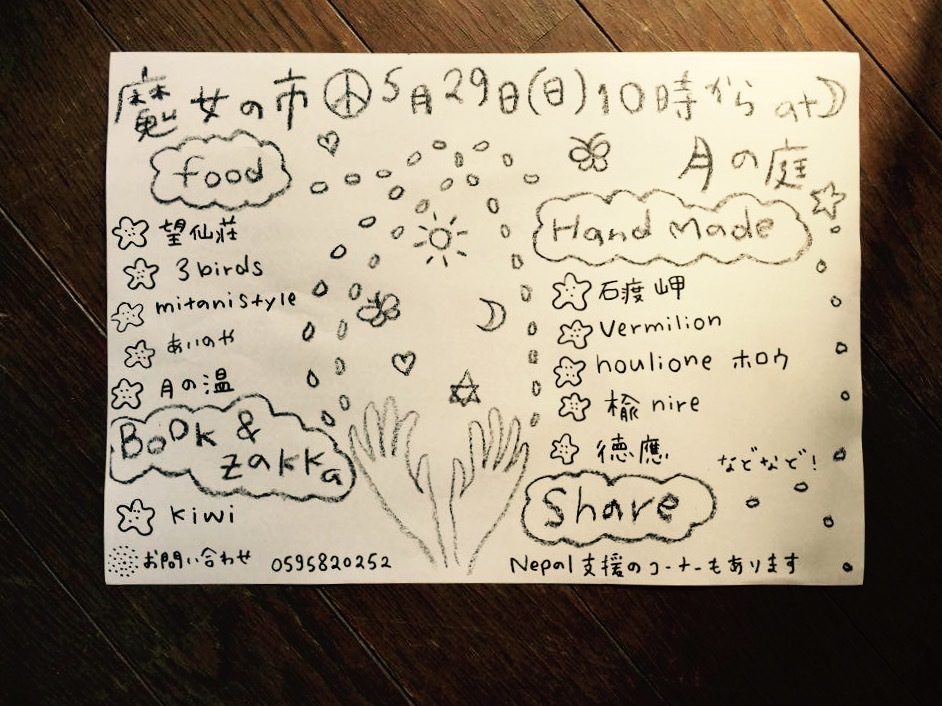 魔女の市 5月29日(日)10時から at
月の庭
food
望仙荘
3birds
mitanistyle
あいのや
月の温
Book & zakka
kiwi
Hand Made
石渡岬
Vermilion
houlione ホロウ
楡 nire
徳應
などなど!
Share
Nepal支援のコーナーもあります
お問い合わせ 0595820252